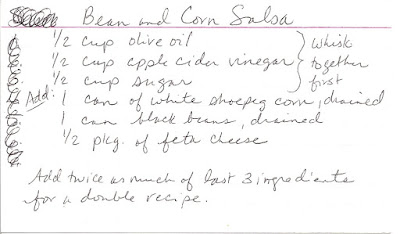 Bean and Corn Salsa
1/2 cup olive oil
1/2 cup apple cider vinegar
1/2 cup sugar
whisk
together
first
Add: 1 can of white shoepeg corn, drained
1 can black beans, drained
1/2 pkg. of feta cheese
Add twice as much of last 3 ingredients
for a double recipe.